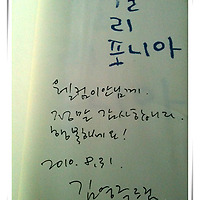 리
포니아
웰컴이안님께.
정말 감사합니다.
행복하세요!
2010. 8. 31.
김영주 드림